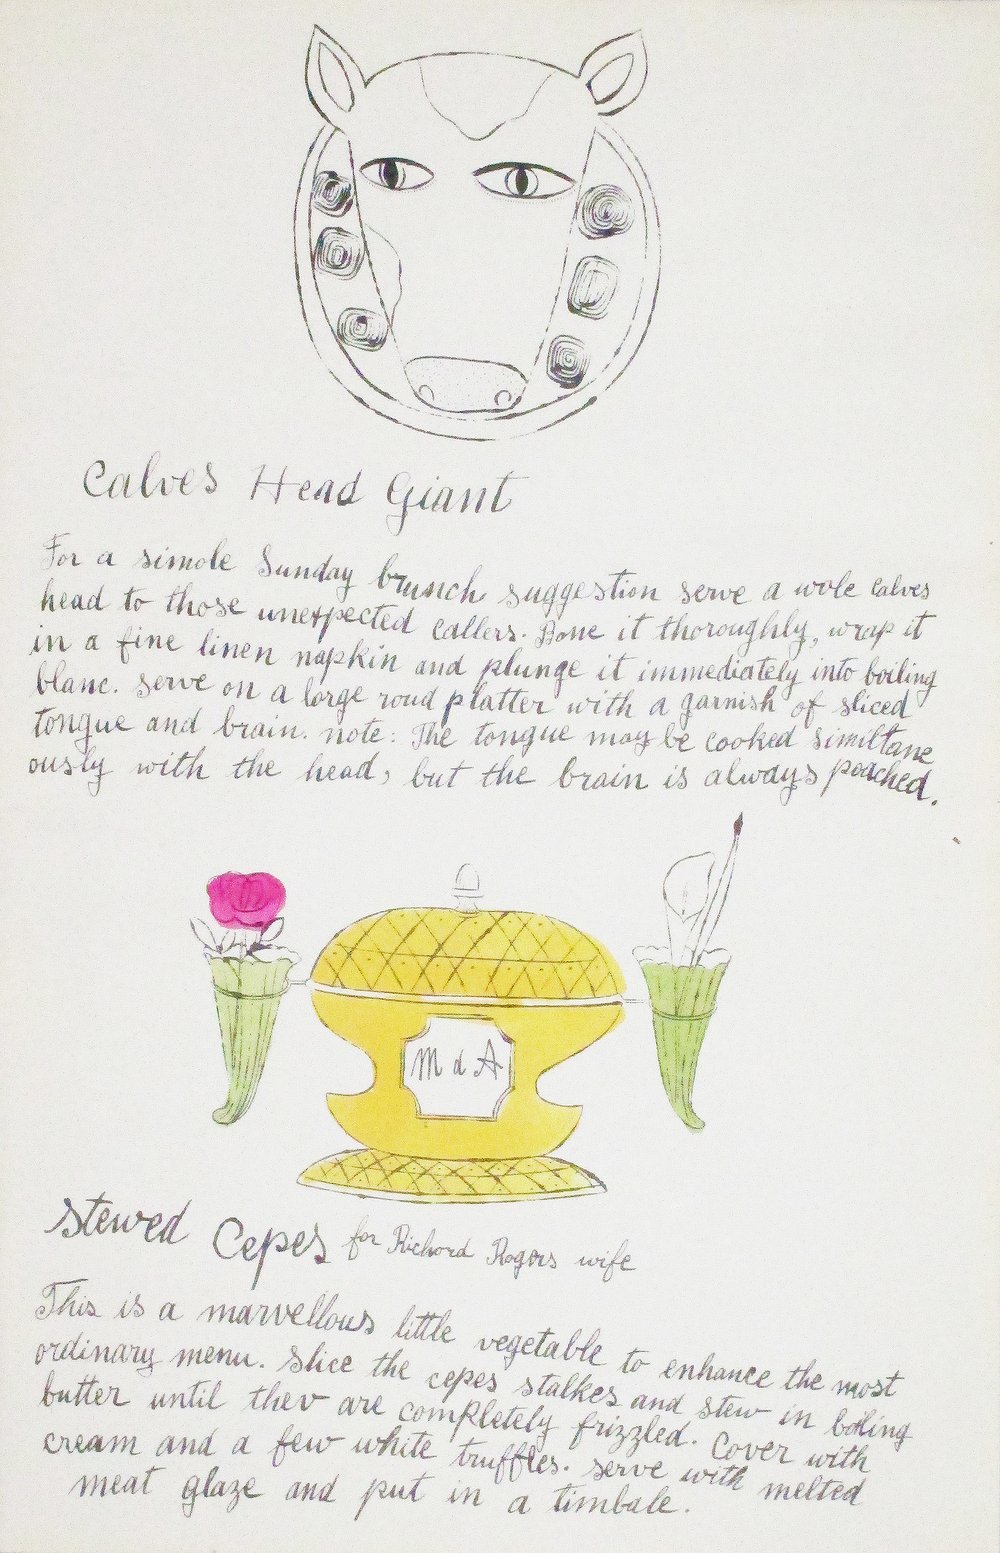 Calves Head Giant
For a simole Sunday brunch suggestion serve a wole calves
head to those unexpected callers. Bone it thoroughly, wrap it
in a fine linen napkin and plunge it immediately into boiling
blanc. serve on a large roud platter with a garnish of sliced
tongue and brain. note: The tongue may be cooked similtane
ously with the head, but the brain is always poached.
M d A
Stewed Cepes for Richard Rogers wife
This is a marvellous little vegetable to enhance the most
ordinary menu. Slice the cepes stalkes and stew in boling
butter until thev are completely frizzled. Cover with
cream and a few white truffles. serve with melted
meat glaze and put in a timbale.